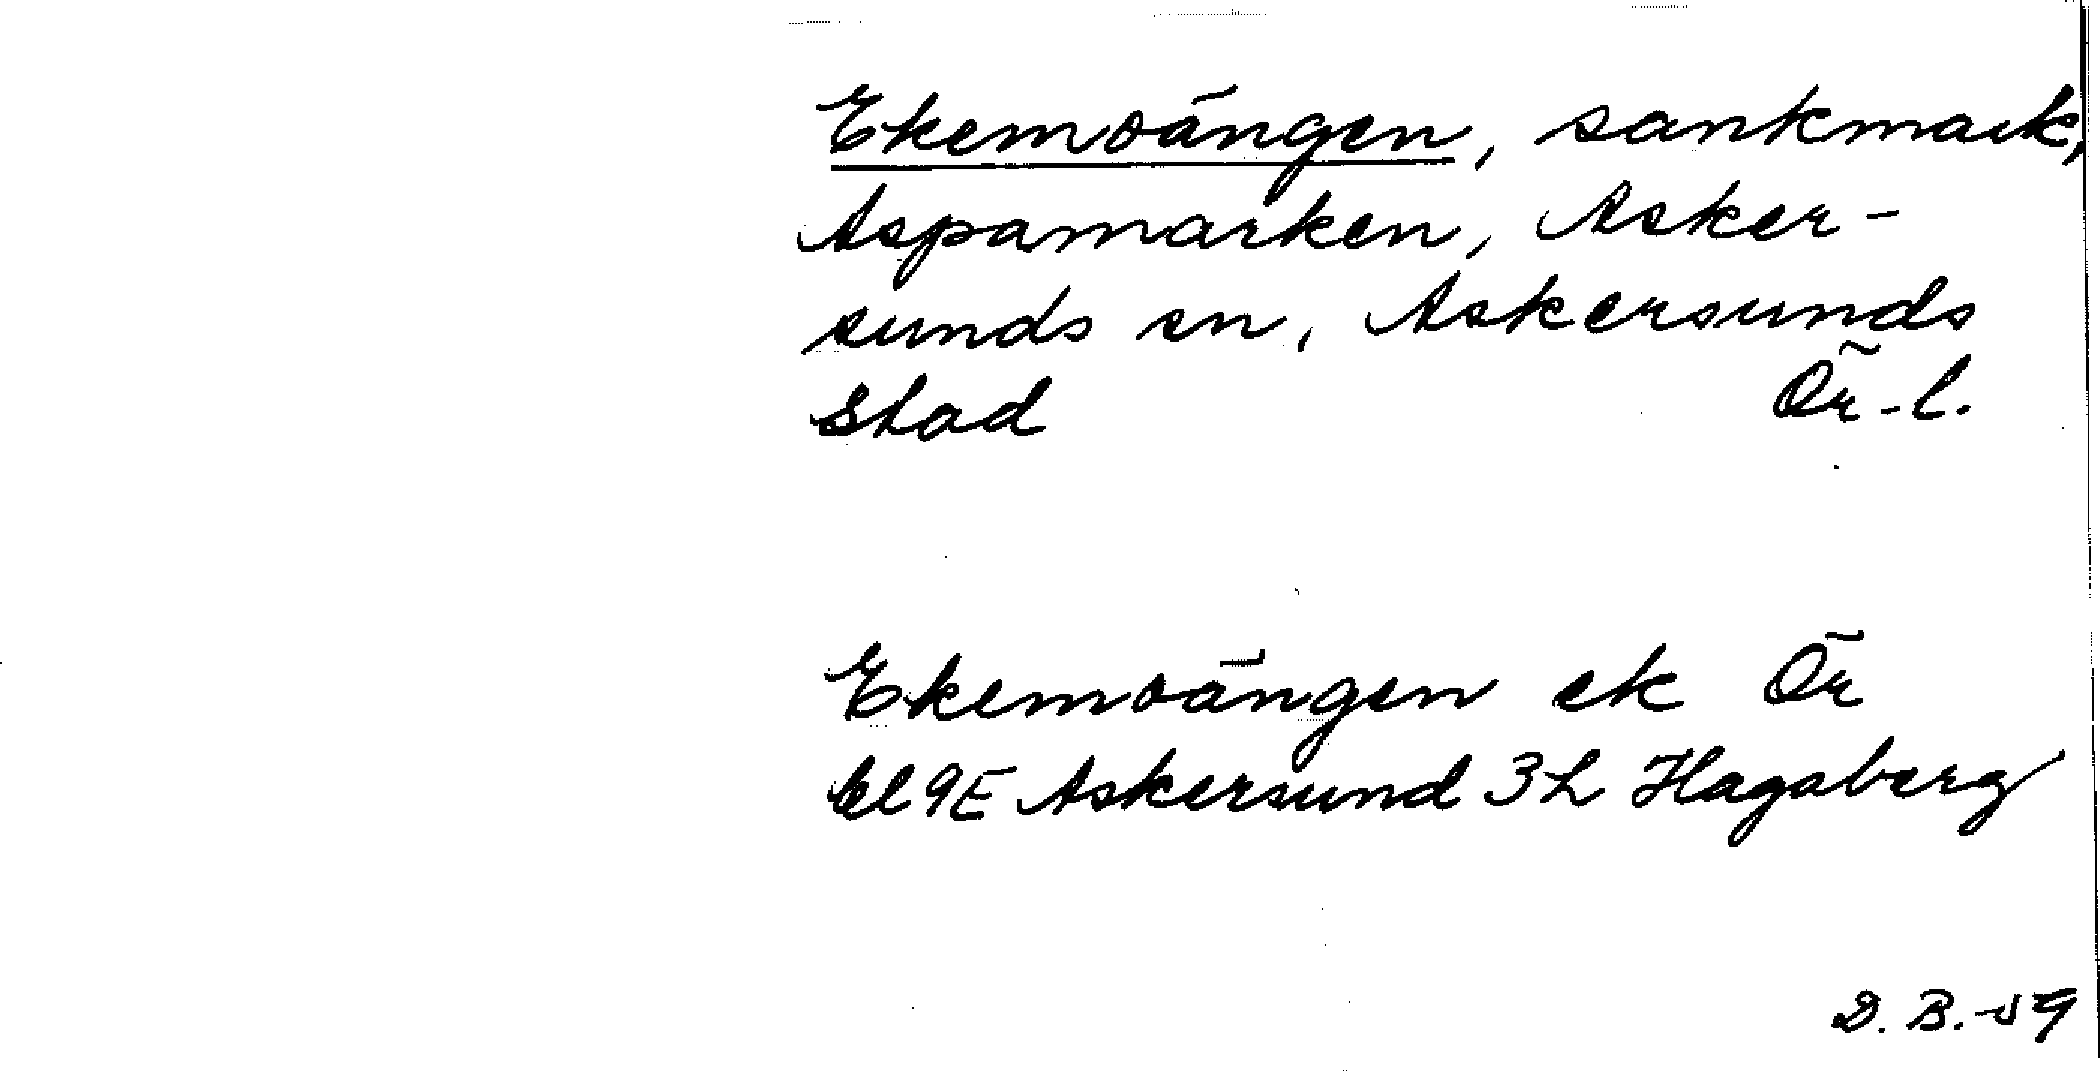 Ekemoängen, sankmark,
Aspamarken, Asker-
sunds sn, Askersunds
Stad Ör-l.
Ekemoängen ek Ör
bl 9E Askersund 3h Hagaberg
D. B.-59